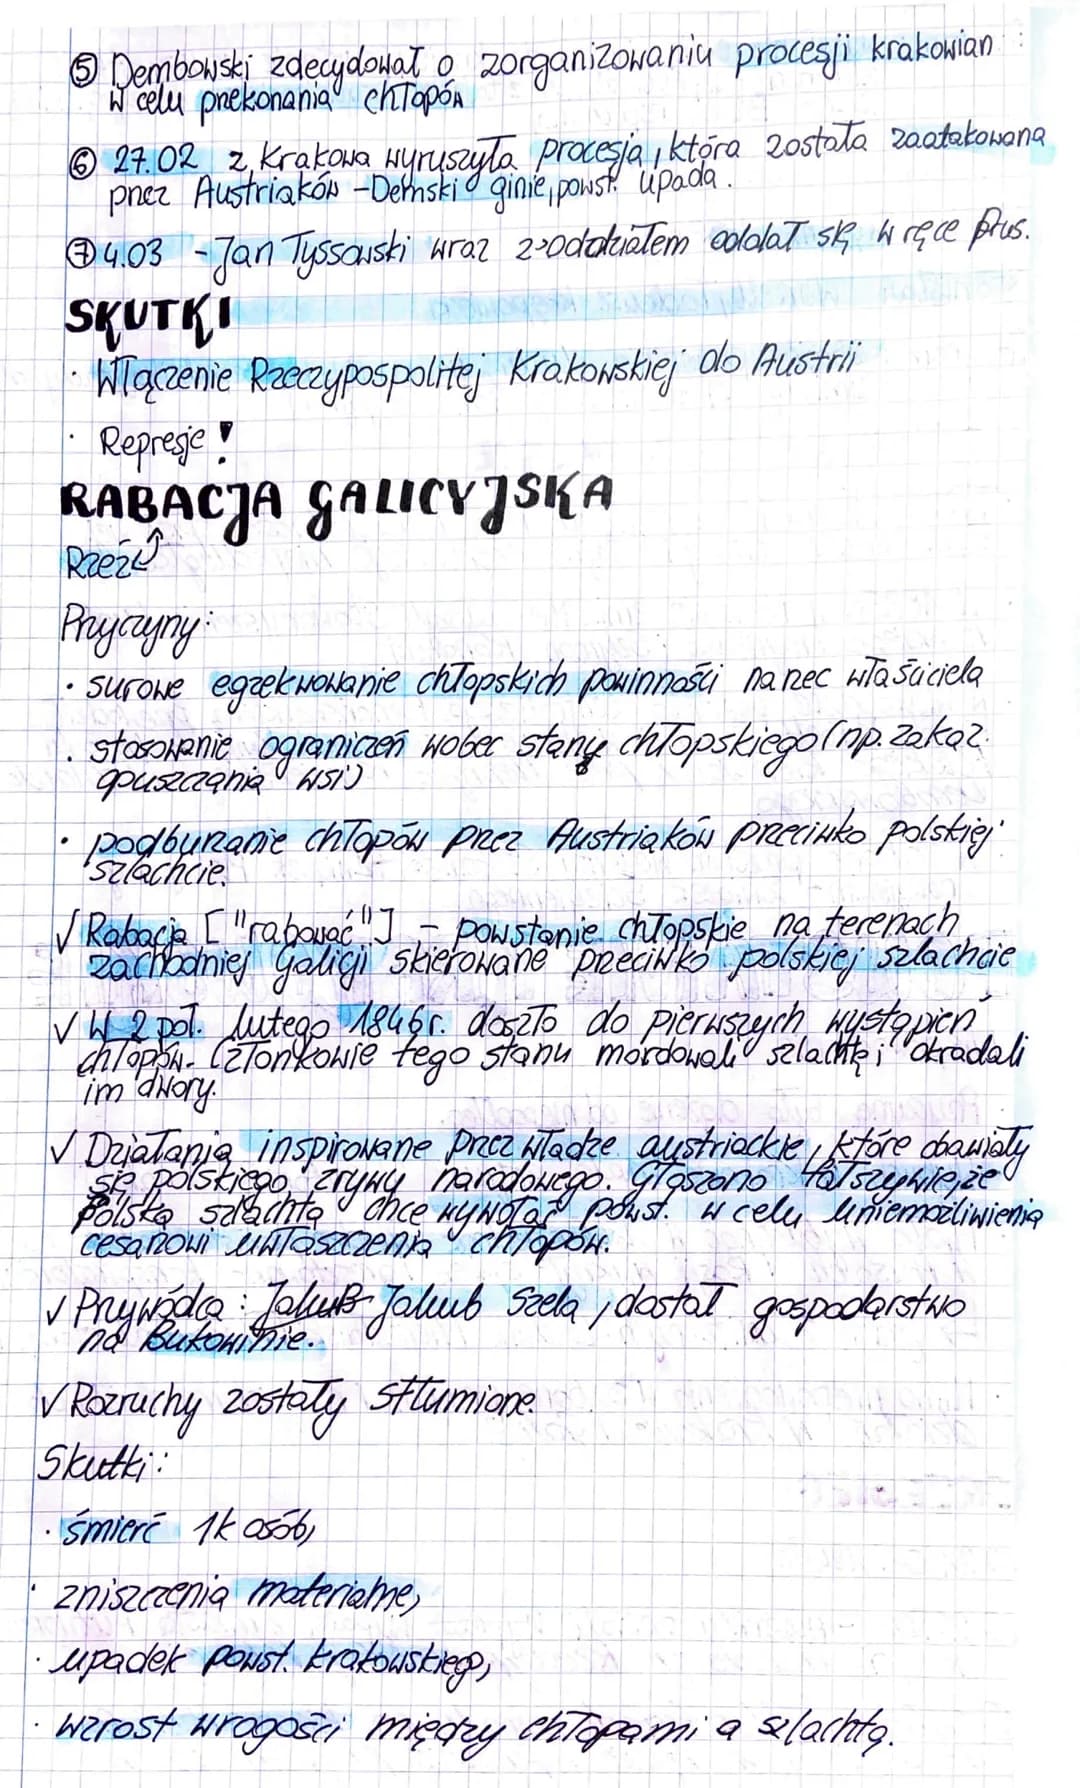 ⑤ Dembowski zdecydował o zorganizowaniu procesji krakowian
w celu przekonania chłopów
⑥ 27.02 z Krakowa wyruszyła procesja, która została zaatakowana
przez Austriaków - Demski ginie, powst. upada.
⑦ 4.03 - Jan Tyssowski wraz z oddziałem oddał się w ręce Prus.
SKUTKI
· Włączenie Rzeczypospolitej Krakowskiej do Austrii
· Represje!
RABACJA GALICYJSKA
Rzeź
Przyczyny:
· surowe egzekwowanie chłopskich powinności na rzec właściciela
· stosowanie ograniczeń wobec stanu chłopskiego (np. zakaz
opuszczania wsi)
· podburzanie chłopów przez Austriaków przeciwko polskiej
szlachcie.
√ Rabacja ["rabować"] - powstanie chłopskie na terenach
zachodniej Galicji skierowane przeciwko polskiej szlachcie
√ W 2 poł. lutego 1846r. doszło do pierwszych wystąpień
chłopów. Członkowie tego stanu mordowali szlachtę i okradali
im dwory.
√ Działania inspirowane przez władze austriackie, które obawiały
się polskiego zrywu narodowego. Głoszono fałszywie, że
polska szlachta chce wywołać powst. w celu uniemożliwienia
cesarzowi uwłaszczenia chłopów.
√ Przywódca: Jakub Jakub Szela, dostał gospodarstwo
na Bukowinie.
√ Rozruchy zostały stłumione.
Skutki:
· śmierć 1k osób,
· zniszczenia materialne,
· upadek powst. krakowskiego,
· wzrost wrogości między chłopami a szlachtą.